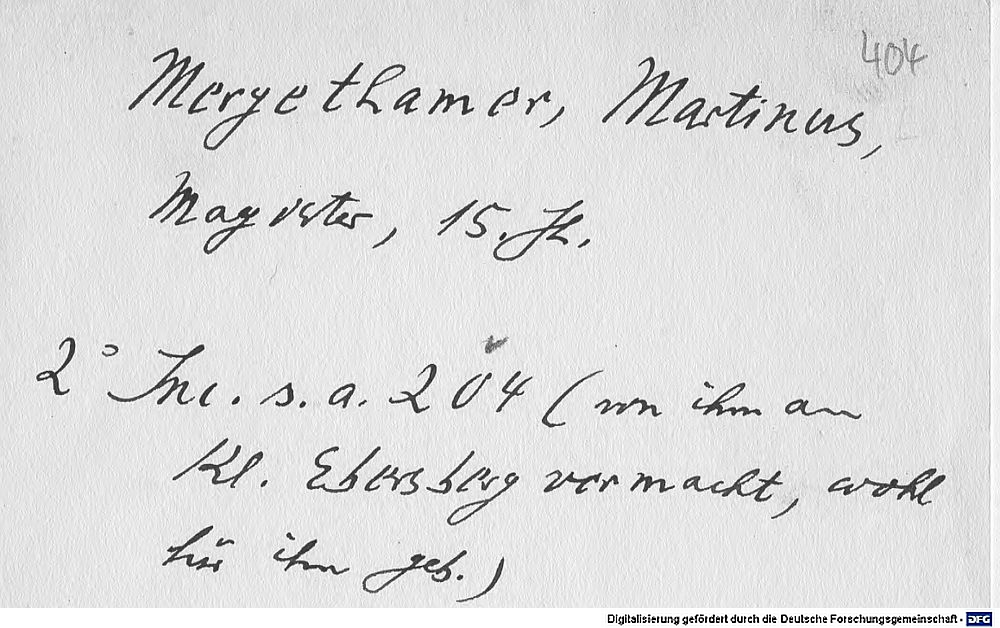 404
Mergethamer, Martinus,
Magister, 15. Jh.
2° Inc. s. a. 204 (von ihm an
Kl. Ebersberg vermacht, wohl
für ihn geb.)
Digitalisierung gefördert durch die Deutsche Forschungsgemeinschaft - DFG